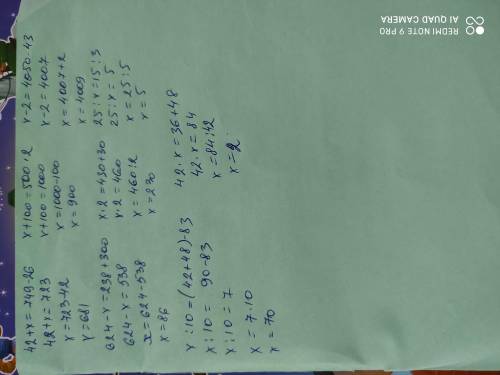 42+x=749-26
42+x=723
x=723-42
x=681
624-x=238+300
624-x=538
x=624-538
x=86
x:10=(42+48)-83
x:10= 90-83
x:10=7
x=7·10
x=70
x+100=500·2
x+100=1000
x=1000-100
x=900
x·2=430+30
x·2=460
x=460:2
x=230
42·x=36+48
42·x=84
x=84:42
x=2
x-2=4050-43
x-2=4007
x=4007+2
x=4009
25:x=15:3
25:x=5
x=25:5
x=5
REDMI NOTE 9 PRO
AI QUAD CAMERA